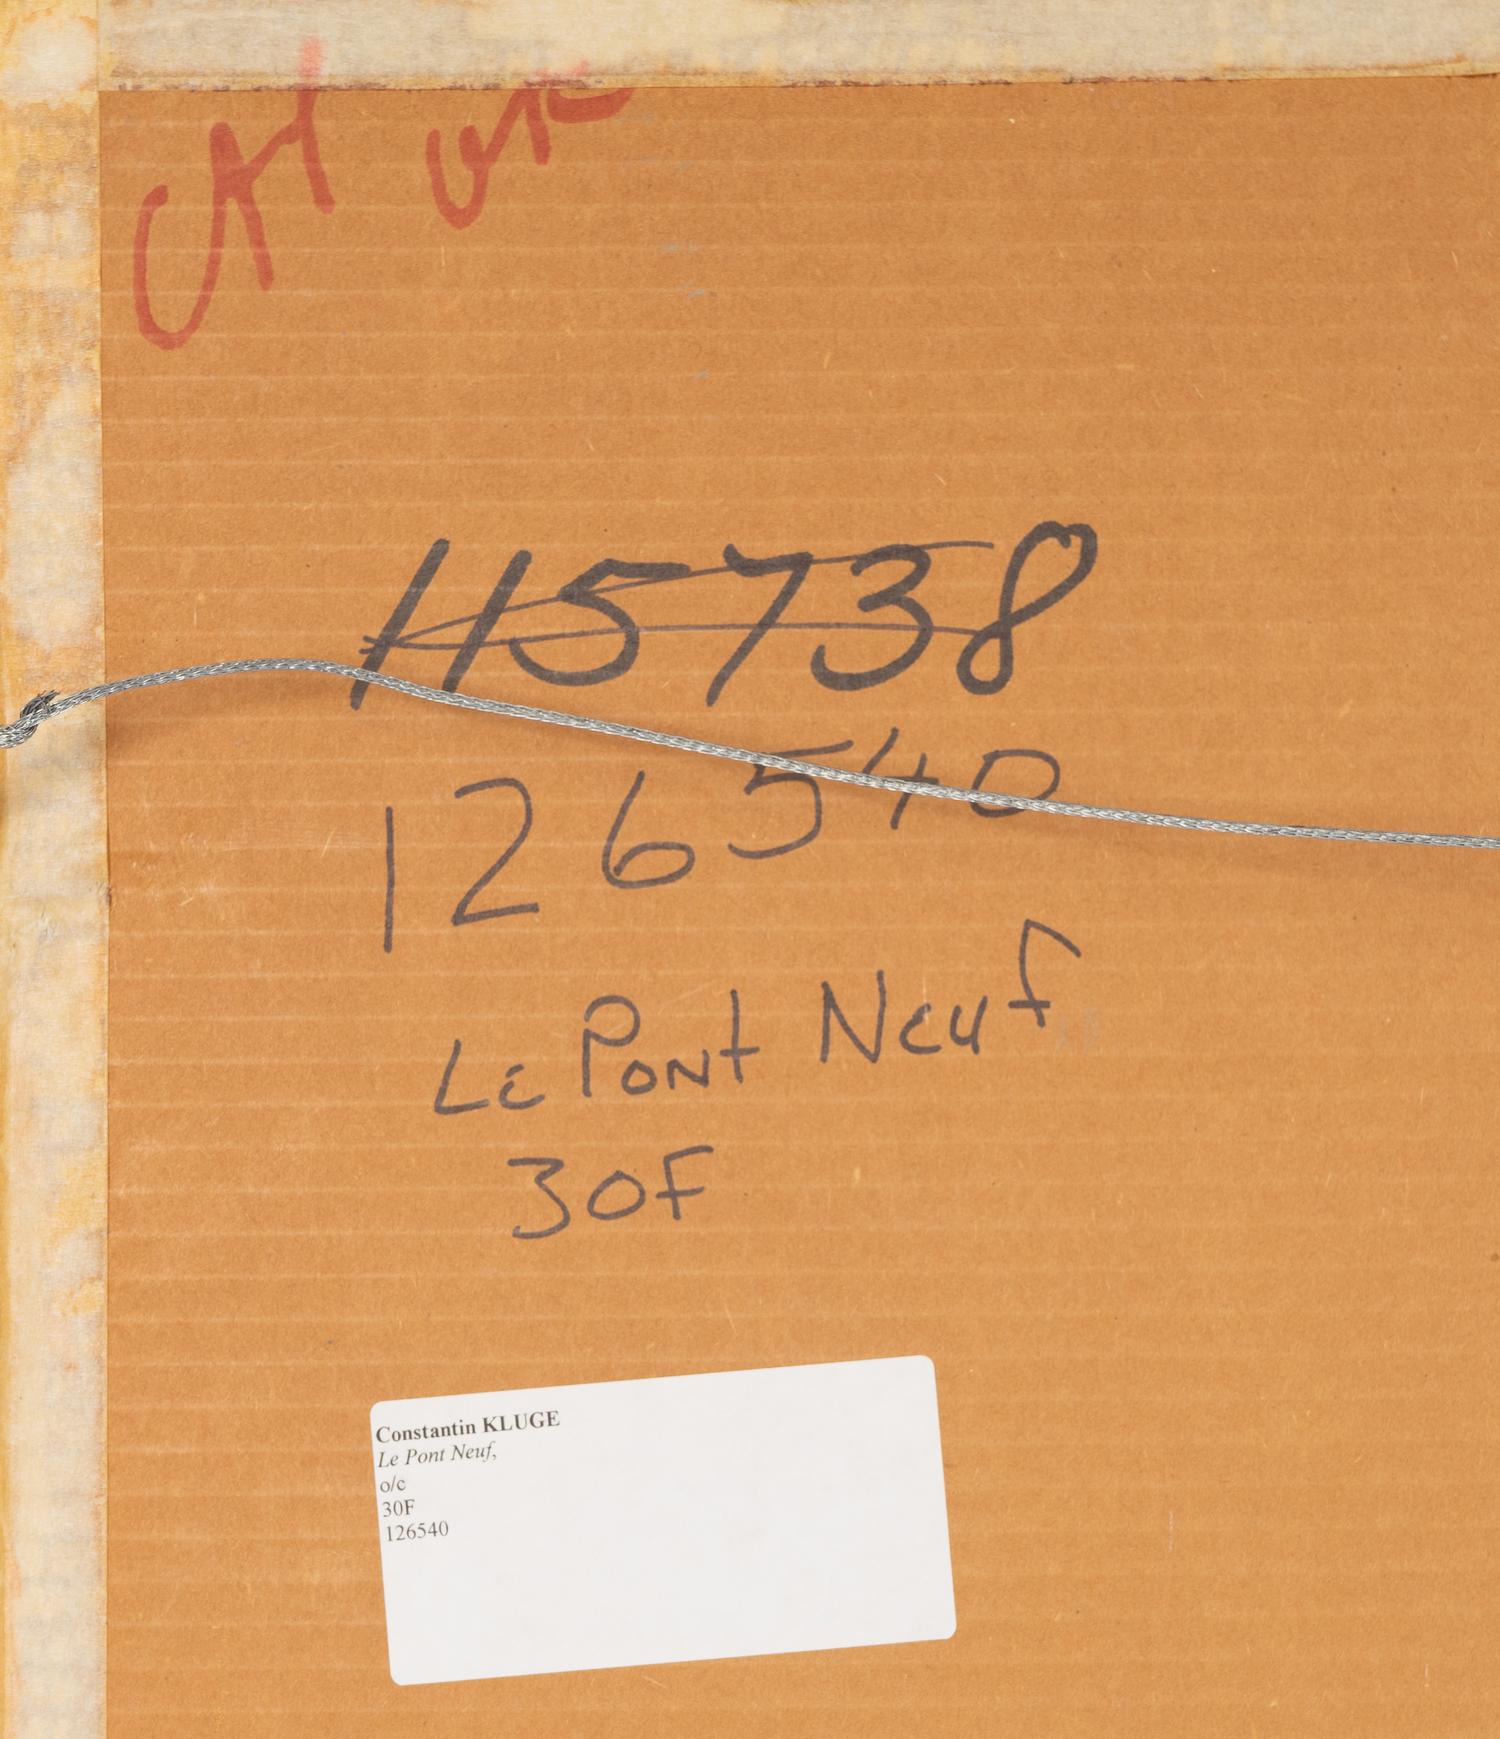 115738
126540
Le Pont Neuf
30F
Constantin KLUGE
Le Pont Neuf,
o/c
30F
126540